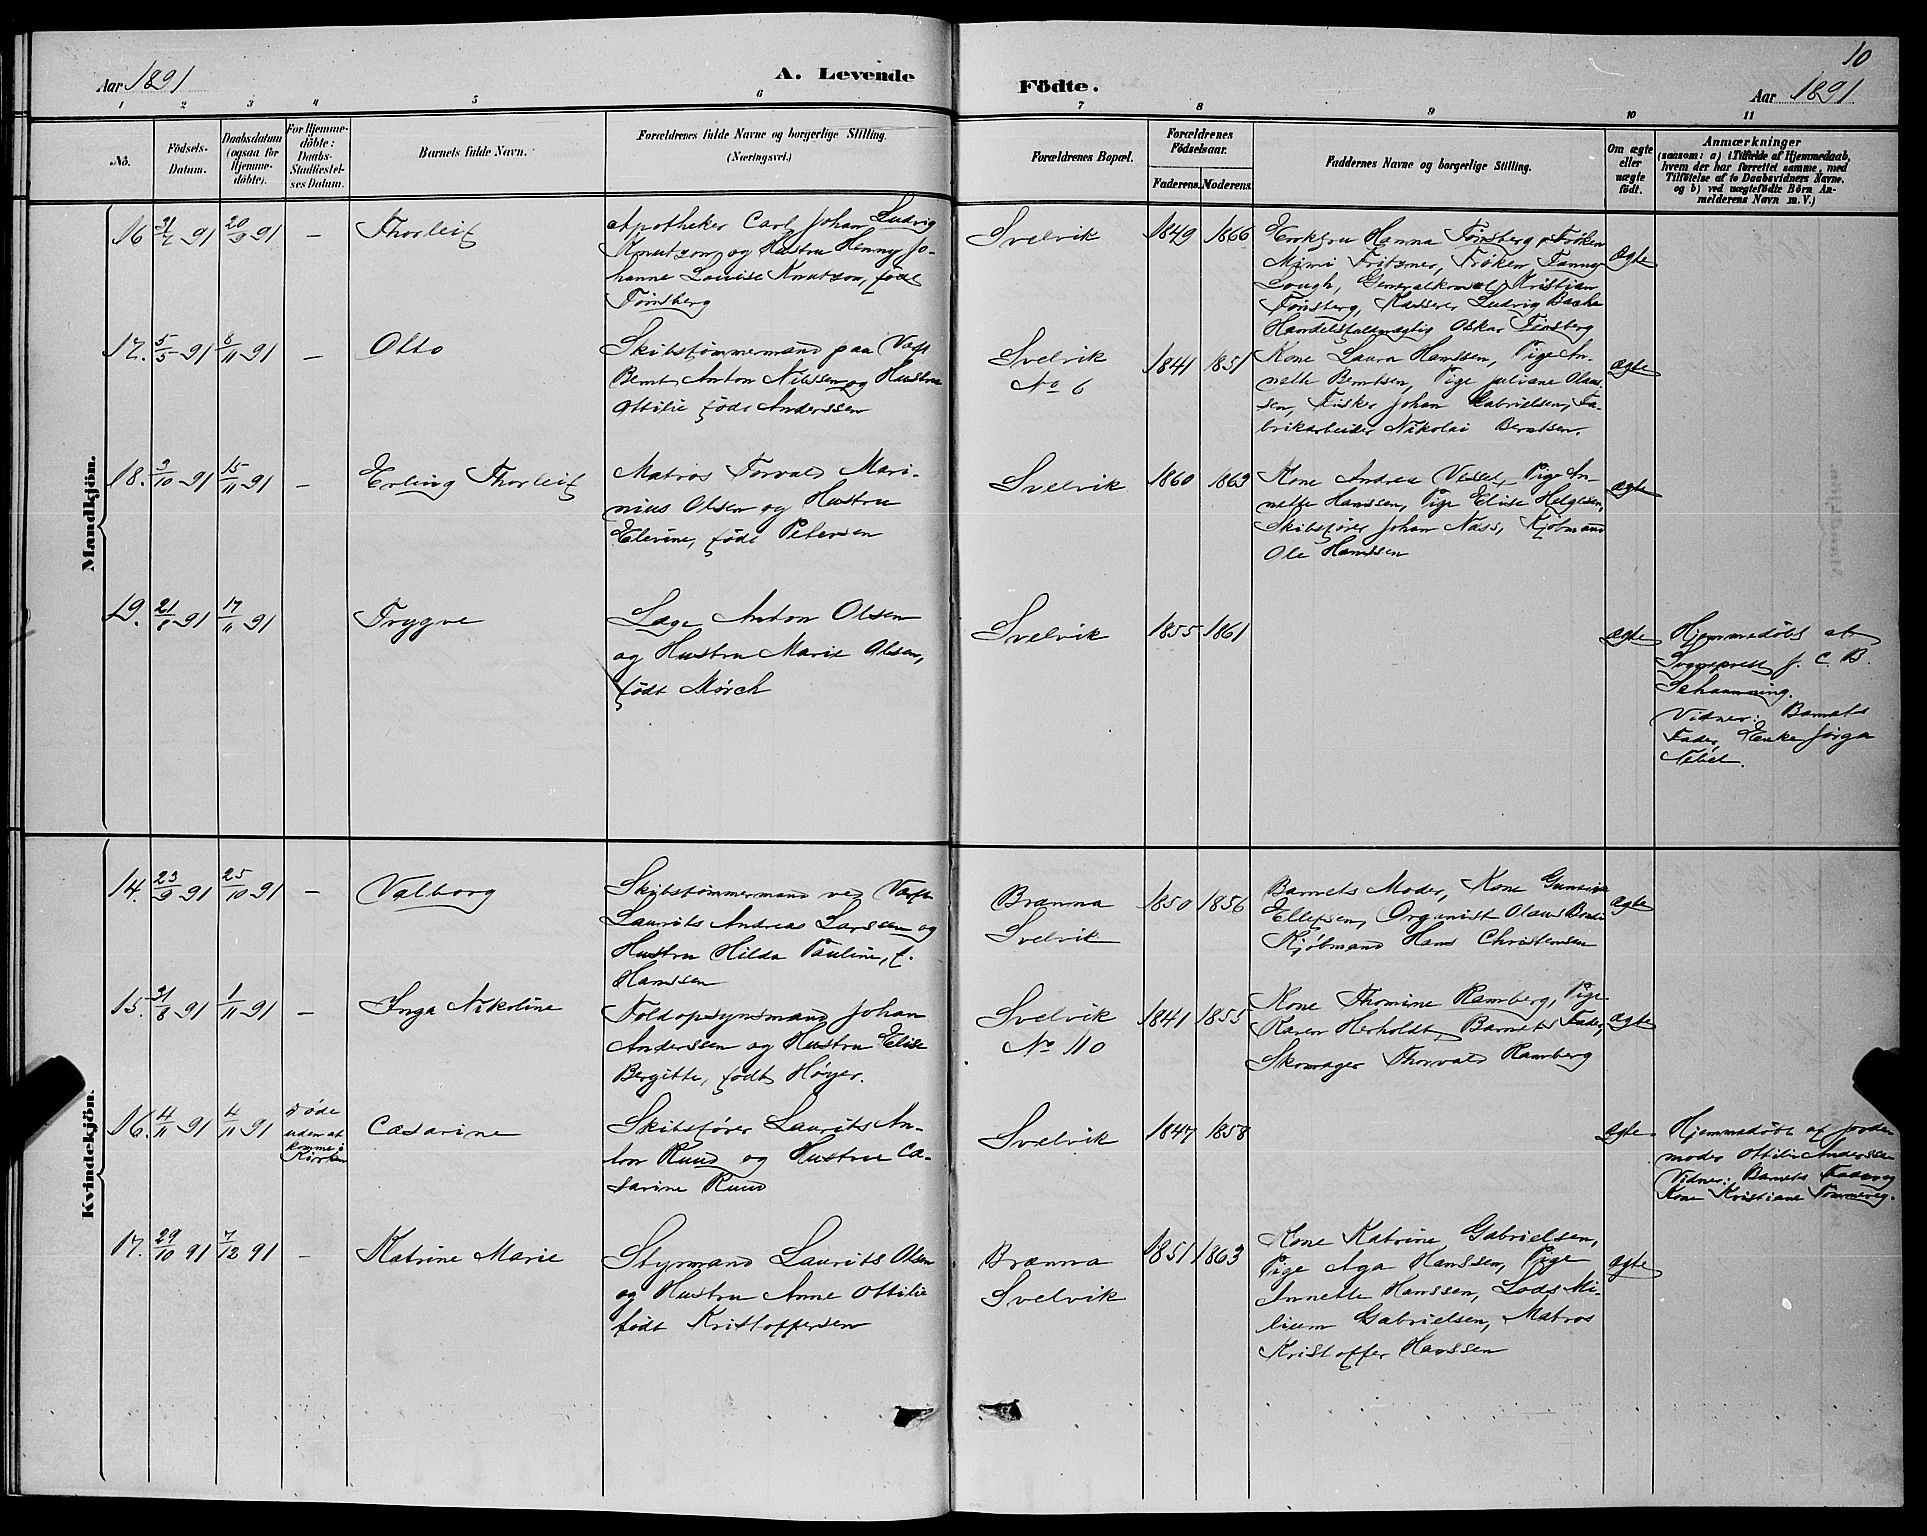 10
Aar 1891
A. Levende
Födte.
Aar 1891
1 2 3 4 5 6 7 8 9 10 11
No.
Födsels-
Datum.
Daabsdatum
(ogsaa for
Hjemme-
döbte).
For Hjemme-
döbte:
Daabs-
Stadfæstel-
ses Datum.
Barnets fulde Navn.
Forældrenes fulde Navne og borgerlige Stilling.
(Næringsvei.)
Forældrenes Bopæl.
Forældrenes
Födselsaar.
Faderens. Moderens.
Faddernes Navne og borgerlige Stilling.
Om ægte
eller
uægte
födt.
Anmærkninger
(saasom: a) i Tilfælde af Hjemmedaab,
hvem der har forrettet samme, med
Tilföielse af to Daabsvidners Navne.
og b) ved uægtefödte Börn An-
melderens Navn m. V.)
Mandkjön.
16 31/7 91 20/9 91 – Thorleif
Apotheker Carl Johan Ludvig
Knutzon og Hustru Henny Jo-
hanne Louise Knutzon, født
Tønsberg
Svelvik
1849 1866
Enkefru Hanna Tønsberg, Frøken
Mimi Fritzner, Frøken Fanny
Lough, Generalkonsul Kristian
Tønsberg, Kasserer Ludvig Bache
Handelsfuldmægtig Oskar Tønsberg
ægte
17. 5/5 91 8/11 91 – Otto
Skibstømmermand paa Værft
Bernt Anton Nilssen og Hustru
Ottilie født Anderssen
Svelvik
No 6
1841 1851
Kone Laura Hanssen, Pige An-
nette Berntsen, Pige Juliane Olaus-
sen, Fisker Johan Gabrielsen, Fa-
brikarbeider Nikolai Berntsen.
ægte
18. 3/10 91 15/11 91 – Erling Thorleif
Matros Torvald Mari-
nius Olsen og Hustru
Elevine, født Petersen
Svelvik
1860 1863
Kone Andrea Vessel, Pige An-
nette Hanssen, Pige Elise Helgesen,
Skibsfører Johan Næss, Kjøbmand
Ole Hanssen
ægte
19. 21/8 91 17/11 91 Trygve
Læge Anton Olsen
og Hustru Marie Olsen,
født Mørch
Svelvik
1855 1861
ægte
Hjemmedøbt af
Sogneprest J. C. B.
Schanning.
Vidner: Barnets
Fader, Enke Jørga
Nebel.
Kvindekjön.
14. 23/9 91 25/10 91 – Valborg
Skibstømmermand ved Værft
Laurits Andreas Larssen og
Hustru Hilda Pauline, f.
Hanssen
Brænna
Svelvik
1850 1856
Barnets Moder, Kone Gunine
Ellefsen, Organist Olaus
Kjøbmand Hans Christensen
ægte
15. 31/8 91 1/11 91 – Inga Nikoline
Toldopsynsmand Johan
Anderssen og Hustru Elise
Bergitte, født Høyer.
Svelvik
No 110
1841 1855
Kone Thomine Ramberg, Pige
Karen Herholdt, Barnets Fader,
Skomager Thorvald Ramberg
ægte
16. 4/11 91 4/11 91 Døde
uden at
komme i
Kirken
Cæsarine
Skibsfører Laurits An-
ton Ruud og Hustru Cæ-
sarine Ruud
Svelvik
1847 1858
ægte.
Hjemmedøbt af Jorde-
moder Ottilie Anderssen
Vidner: Barnets Fader og
Kone Kristiane Tømmereg.
17. 29/10 91 7/12 91 – Katrine Marie
Styrmand Laurits Olsen
og Hustru Anne Ottilie
født Kristoffersen
Brænna
Svelvik
1851 1863
Kone Katrine Gabrielsen,
Pige Aga Hanssen, Pige
Annette Hanssen, Lods Mi-
lium Gabrielsen, Matros
Kristoffer Hanssen
ægte